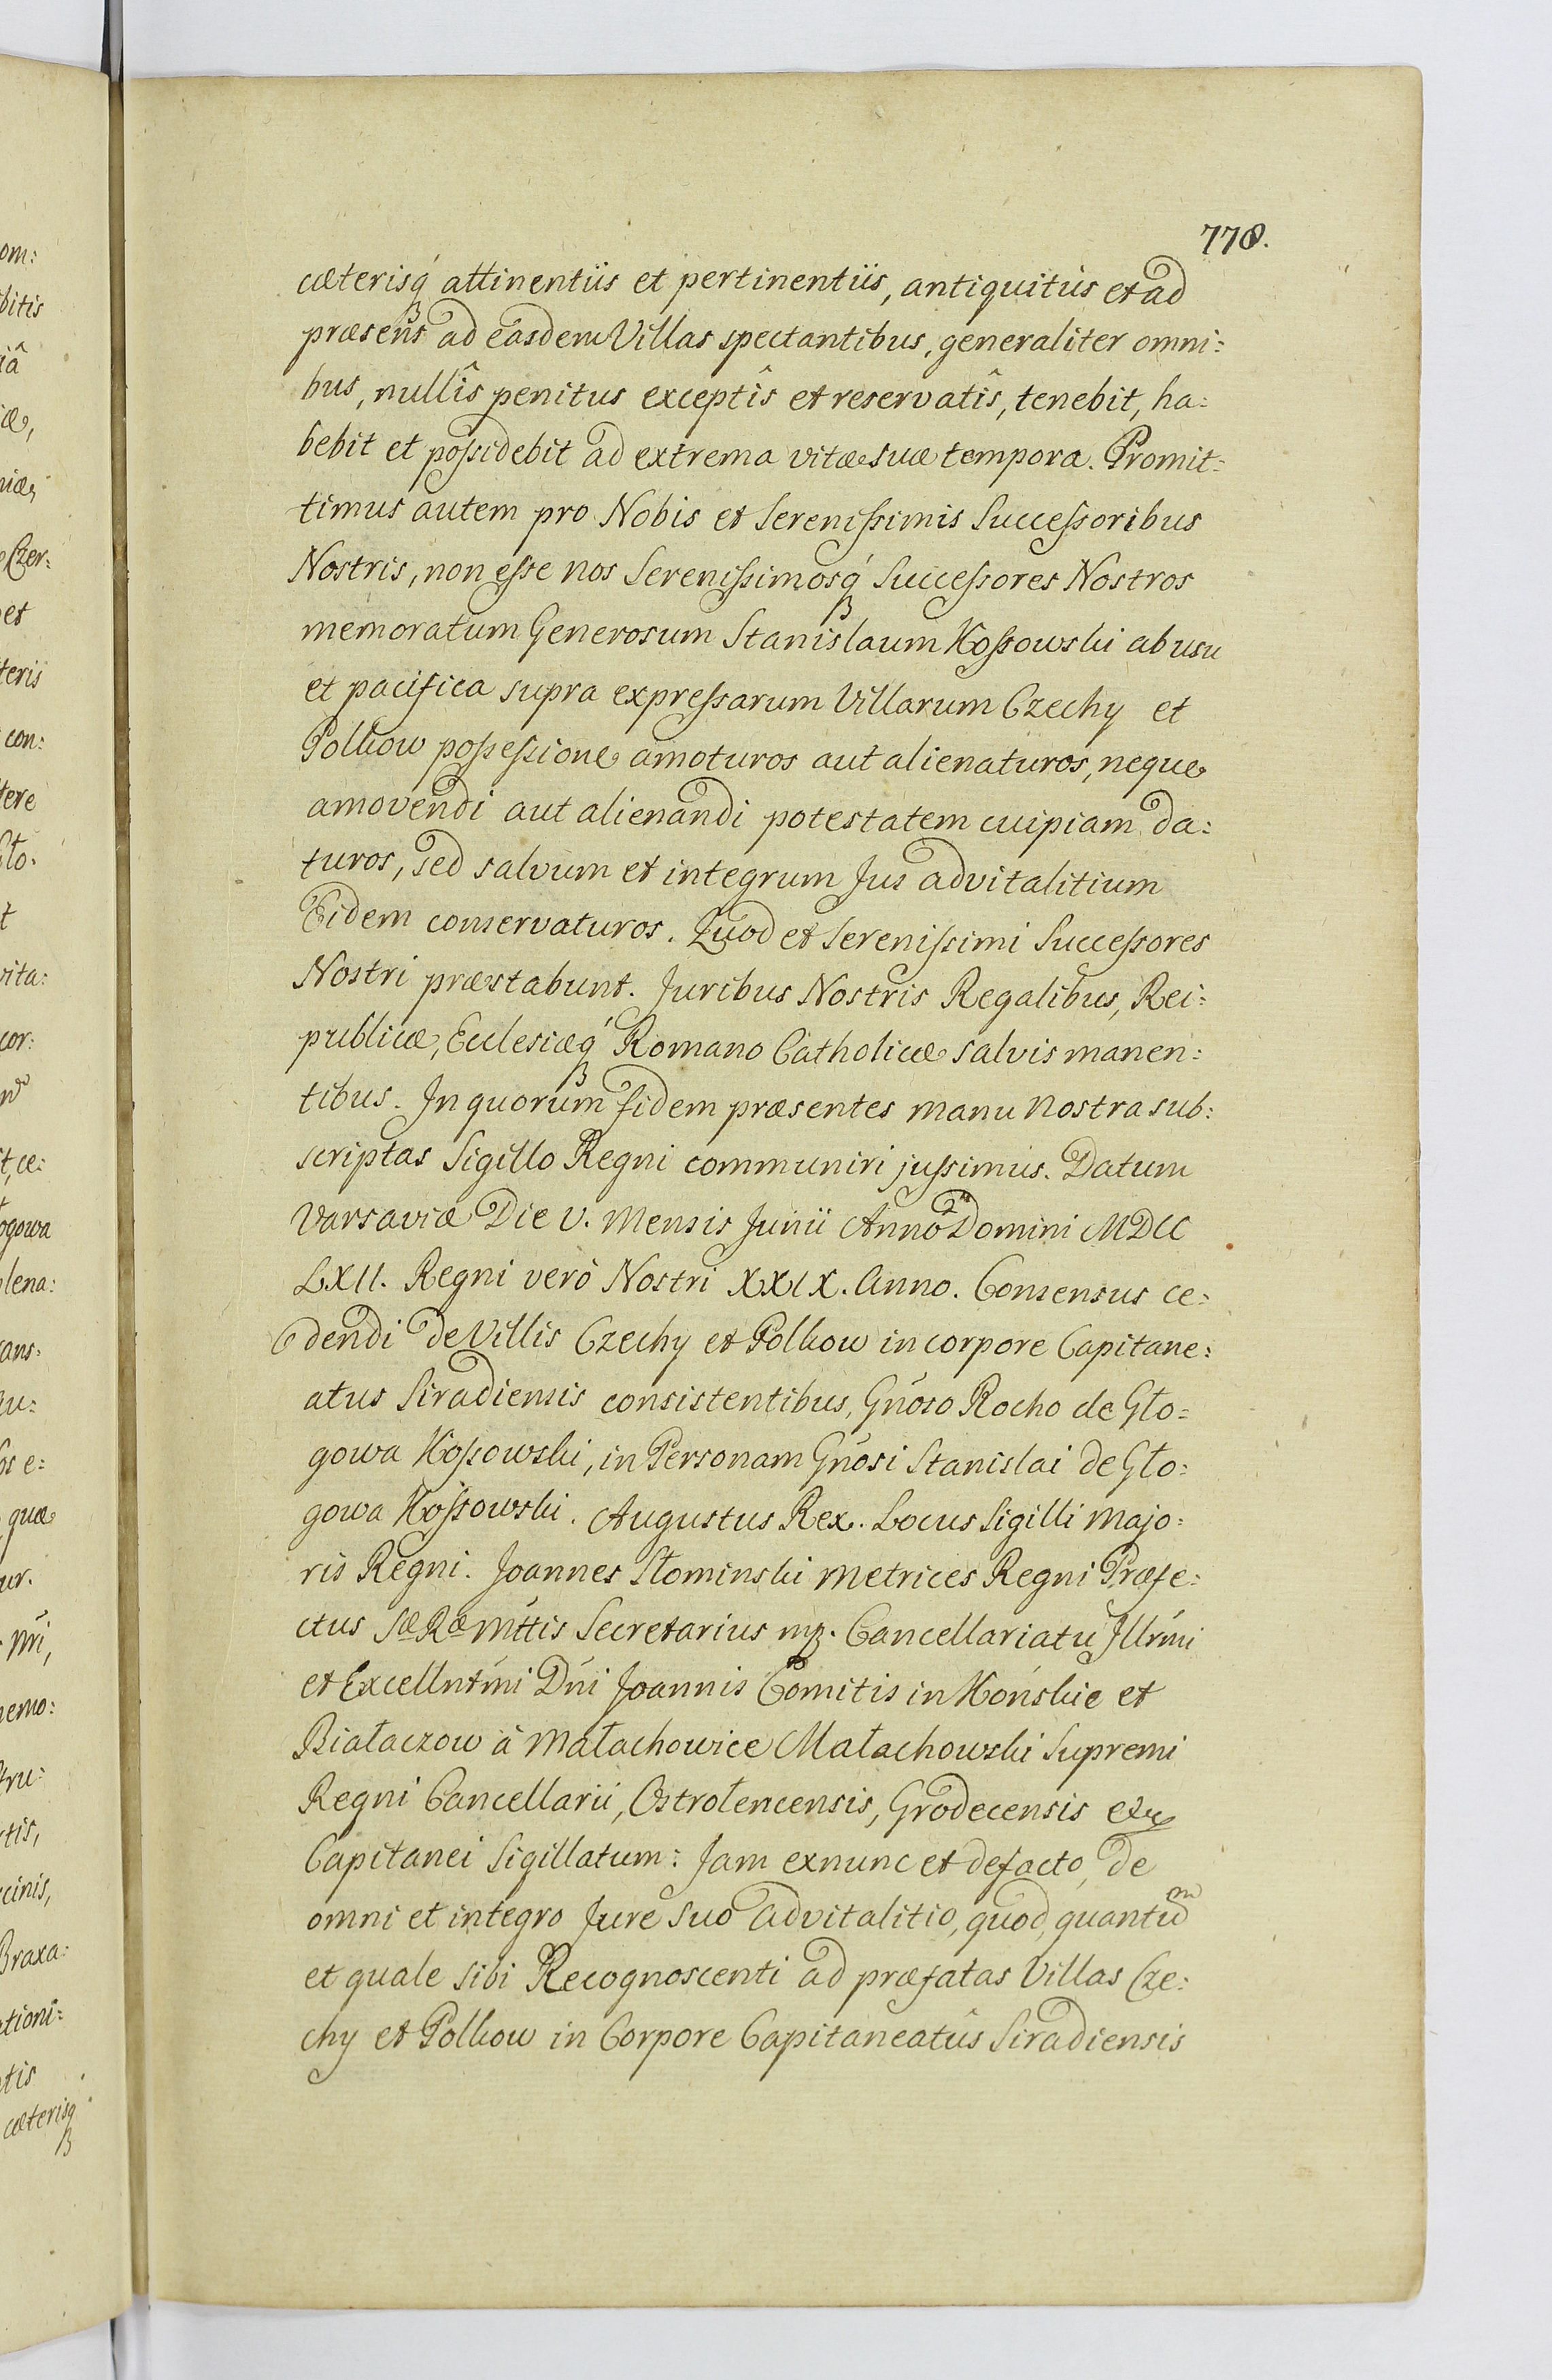 778.
cæterisq́ attinentiis et pertinentiis, antiquitùs et ad
præsens ad easdem Villas spectantibus, generaliter omni:
bus, nullîs penitus exceptîs et reservatîs, tenebit, ha:
bebit et poſsidebit ad extrema vitæ suæ tempora. Promit:
timus autem pro Nobis et Sereniſsimis Succeſsoribus
Nostris, non eſse nos Sereniſsimosq́ Succeſsores Nostros
memoratum Generosum Stanislaum Koſsowski ab usu
et pacifica supra expreſsarum Villarum Czechy et
Polkow poſseſsione amoturos aut alienaturos, neque
amovendi aut alienandi potestatem cuipiam da:
turos, sed salvum et integrum Jus advitalitium
Eidem conservaturos. Quod et Sereniſsimi Succeſsores
Nostri præstabunt. Juribus Nostris Regalibus, Rei:
publicæ, Ecclesiæq́ Romano Catholicæ salvis manen:
tibus. In quorum fidem præsentes manu Nostra sub:
scriptas Sigillo Regni communiri juſsimus. Datum
Varsaviæ Die V. Mensis Junii Anno Domini MDCC
LXII. Regni verò Nostri XXIX. Anno. Consensus ce:
dendi de Villis Czechy et Polkow in corpore Capitane:
atus Siradiensis consistentibus, Gńoso Rocho de Gło:
gowa Koſsowski, in Personam Gńosi Stanislai de Gło:
gowa Koſsowski. Augustus Rex. Locus Sigilli Majo:
ris Regni. Joannes Słominski Metrices Regni Præfe:
ctus Sæ Ræ Mttis Secretarius mp. Cancellariatu Illrḿi
et Excellntḿi Dńi Joannis Comitis in Końskie et
Białaczow à Małachowice Małachowski Supremi
Regni Cancellarii, Ostrołencensis, Grodecensis etc
Capitanei Sigillatum: Jam exnunc et defacto, de
omni et integro Jure suo advitalitio, quod, quantum
et quale sibi Recognoscenti ad præfatas Villas Cze:
chy et Polkow in Corpore Capitaneatûs Siradiensis